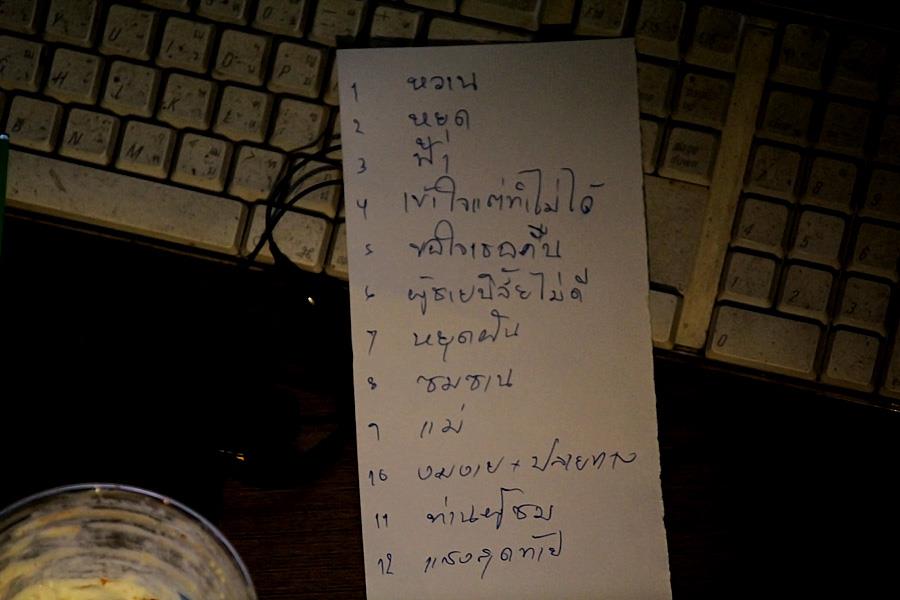 1 หวาน
2 หยุด
3 ฟ้า
4 เข้าใจแต่ทำไม่ได้
5 ขอใจเธอคืน
6 ผู้ชายนิสัยไม่ดี
7 หยุดฝัน
8 ซมซาน
9 แม่
10 งมงาย + ปลายทาง
11 ท่านผู้ชม
12 แสงสุดท้าย